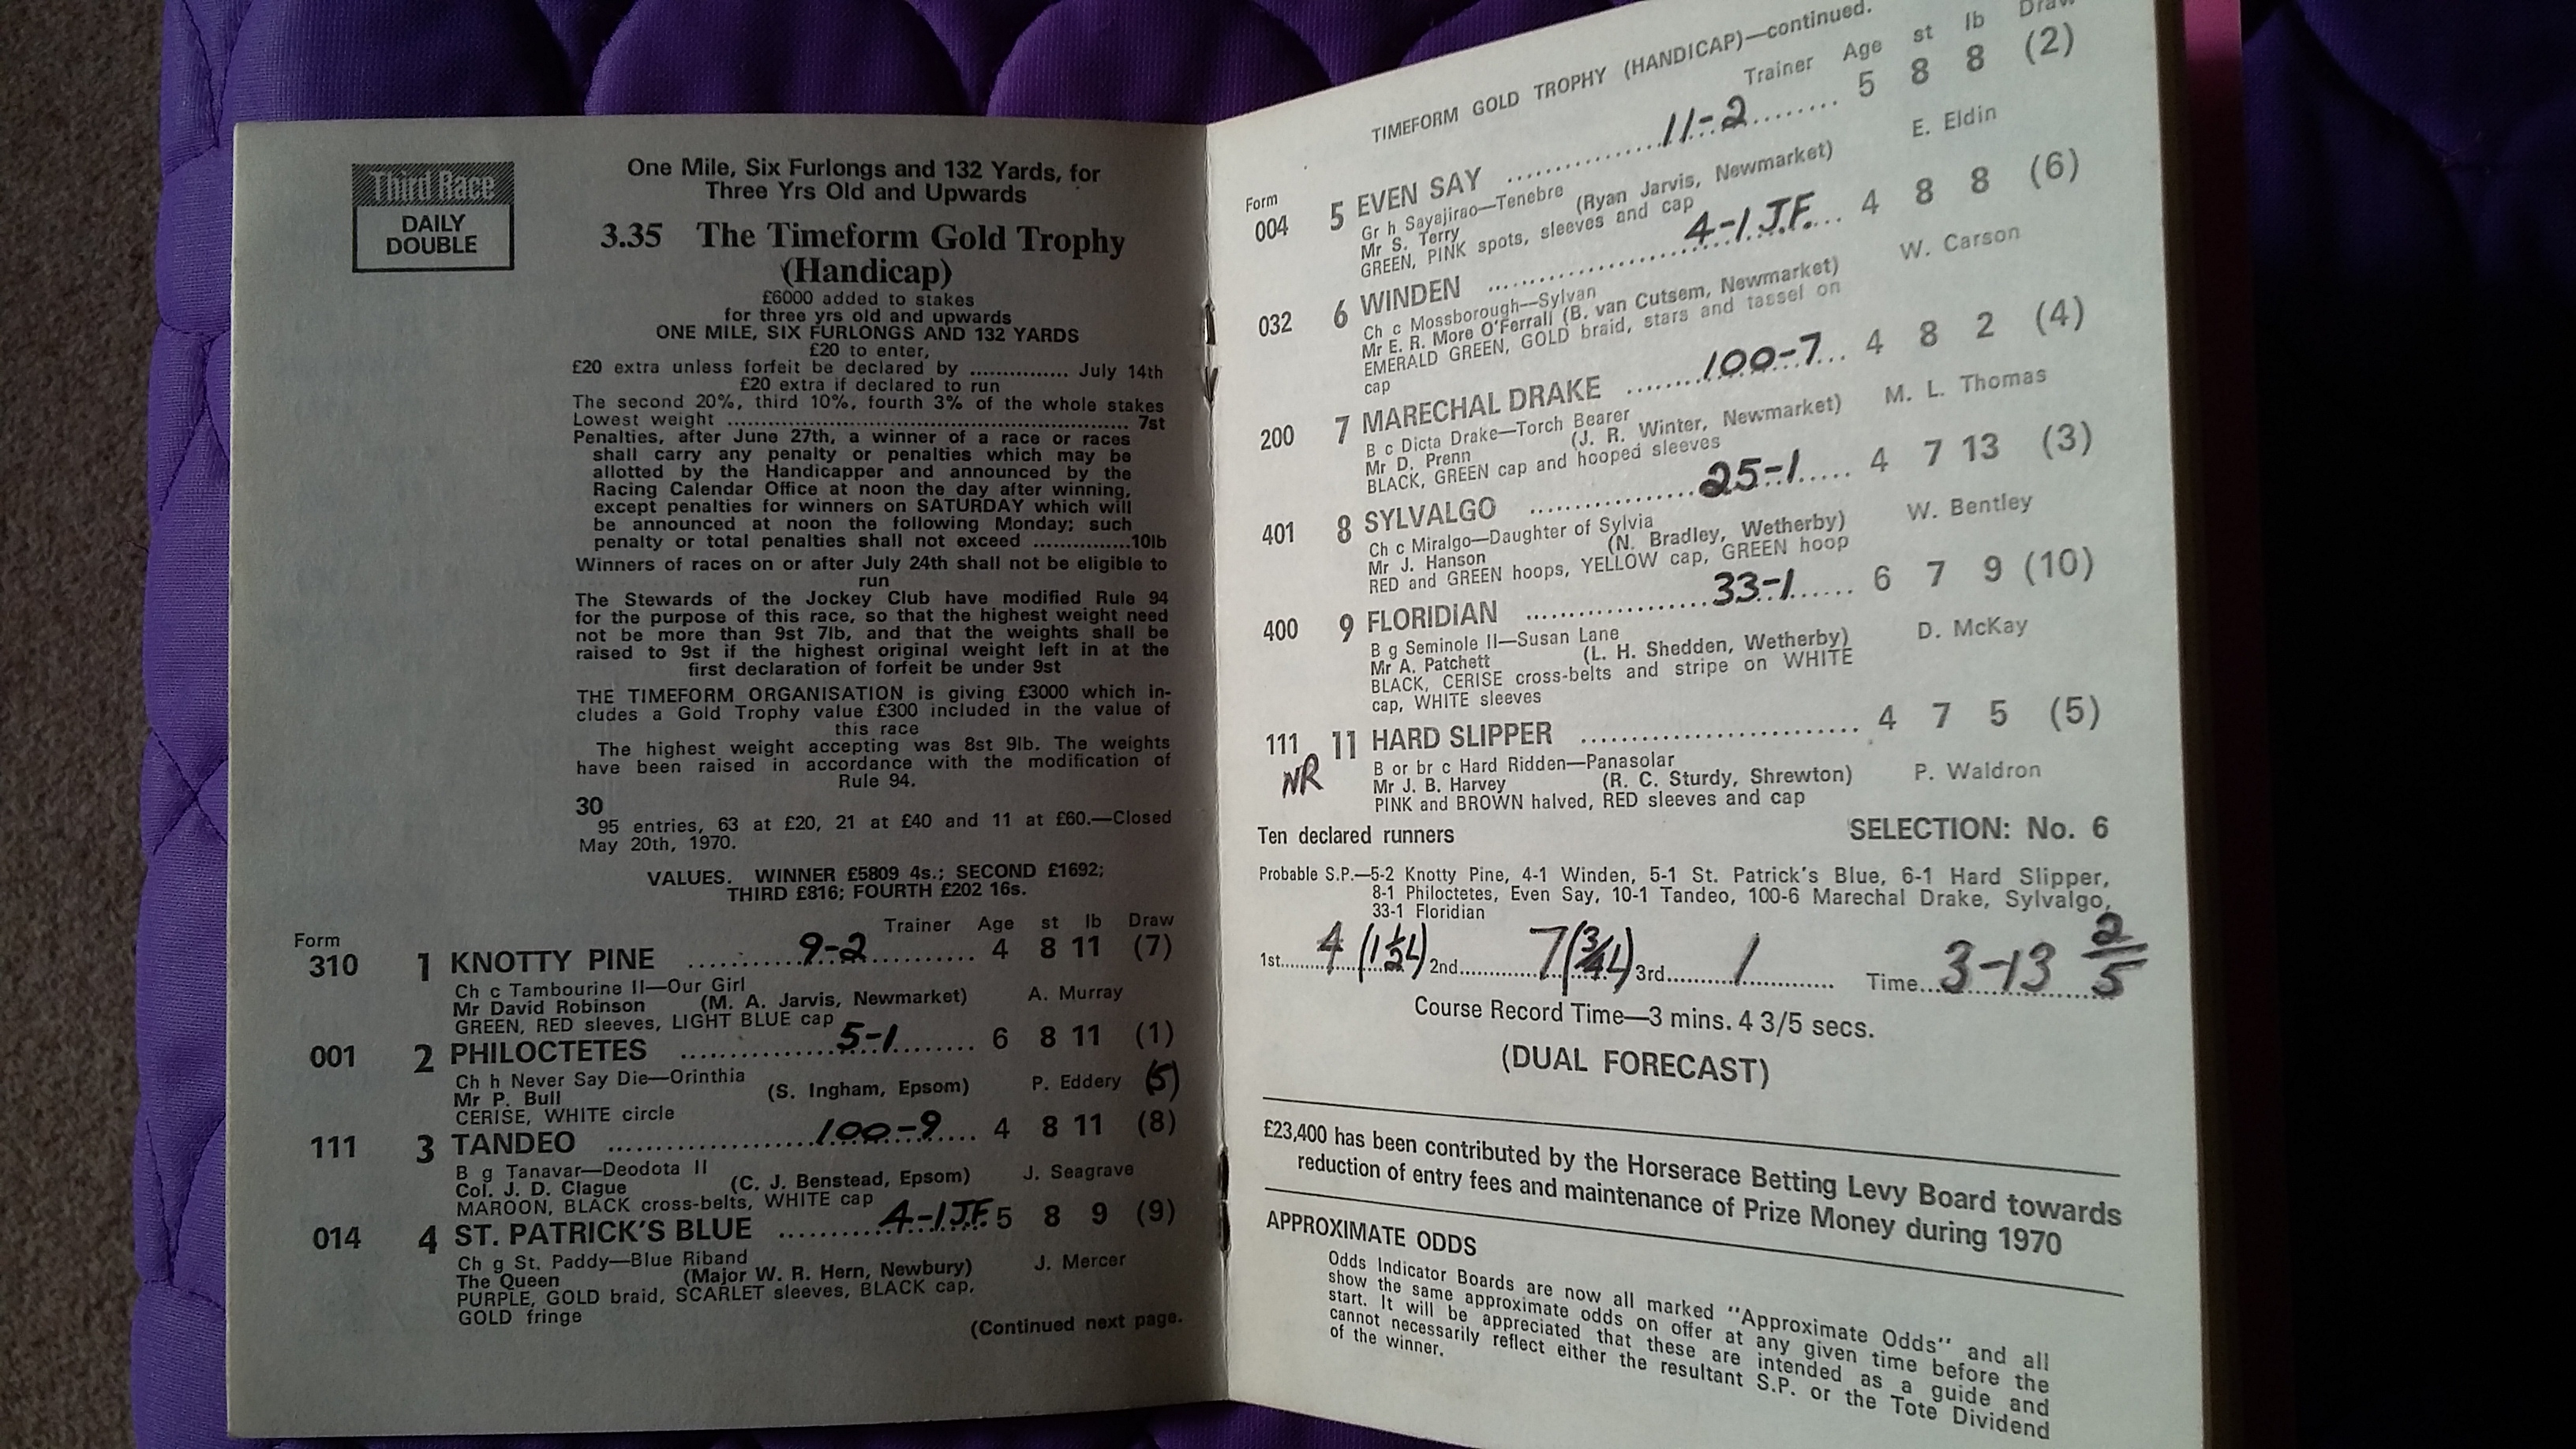 Third Race
DAILY
DOUBLE
One Mile, Six Furlongs and 132 Yards, for
Three Yrs Old and Upwards
3.35 The Timeform Gold Trophy
(Handicap)
£6000 added to stakes
for three yrs old and upwards
ONE MILE, SIX FURLONGS AND 132 YARDS
£20 to enter,
£20 extra unless forfeit be declared by ............... July 14th
£20 extra if declared to run
The second 20%, third 10%, fourth 3% of the whole stakes
Lowest weight ............................................................ 7st
Penalties, after June 27th, a winner of a race or races
shall carry any penalty or penalties which may be
allotted by the Handicapper and announced by the
Racing Calendar Office at noon the day after winning,
except penalties for winners on SATURDAY which will
be announced at noon the following Monday; such
penalty or total penalties shall not exceed ...............10lb
Winners of races on or after July 24th shall not be eligible to
run
The Stewards of the Jockey Club have modified Rule 94
for the purpose of this race, so that the highest weight need
not be more than 9st 7lb, and that the weights shall be
raised to 9st if the highest original weight left in at the
first declaration of forfeit be under 9st
THE TIMEFORM ORGANISATION is giving £3000 which in-
cludes a Gold Trophy value £300 included in the value of
this race
The highest weight accepting was 8st 9lb. The weights
have been raised in accordance with the modification of
Rule 94.
30
95 entries, 63 at £20, 21 at £40 and 11 at £60.—Closed
May 20th, 1970.
VALUES. WINNER £5809 4s.; SECOND £1692;
THIRD £816; FOURTH £202 16s.
Form Trainer Age st lb Draw
310 1 KNOTTY PINE ......9-2...... 4 8 11 (7)
Ch c Tambourine II—Our Girl
Mr David Robinson (M. A. Jarvis, Newmarket) A. Murray
GREEN, RED sleeves, LIGHT BLUE cap
001 2 PHILOCTETES ......5-1...... 6 8 11 (1)
Ch h Never Say Die—Orinthia
Mr P. Bull (S. Ingham, Epsom) P. Eddery (5)
CERISE, WHITE circle
111 3 TANDEO ......100-9...... 4 8 11 (8)
B g Tanavar—Deodota II
Col. J. D. Clague (C. J. Benstead, Epsom) J. Seagrave
MAROON, BLACK cross-belts, WHITE cap
014 4 ST. PATRICK'S BLUE ......4-1 JF. 5 8 9 (9)
Ch g St. Paddy—Blue Riband
The Queen (Major W. R. Hern, Newbury) J. Mercer
PURPLE, GOLD braid, SCARLET sleeves, BLACK cap,
GOLD fringe
(Continued next page.
TIMEFORM GOLD TROPHY (HANDICAP)—continued.
Form Trainer Age st lb Draw
004 5 EVEN SAY ......11-2...... 5 8 8 (2)
Gr h Sayajirao—Tenebre
Mr S. Terry (Ryan Jarvis, Newmarket) E. Eldin
GREEN, PINK spots, sleeves and cap
032 6 WINDEN ......4-1 J.F.... 4 8 8 (6)
Ch c Mossborough—Sylvan
Mr E. R. More O'Ferrall (B. van Cutsem, Newmarket) W. Carson
EMERALD GREEN, GOLD braid, stars and tassel on
cap
200 7 MARECHAL DRAKE ......100-7... 4 8 2 (4)
B c Dicta Drake—Torch Bearer
Mr D. Prenn (J. R. Winter, Newmarket) M. L. Thomas
BLACK, GREEN cap and hooped sleeves
401 8 SYLVALGO ......25-1..... 4 7 13 (3)
Ch c Miralgo—Daughter of Sylvia
Mr J. Hanson (N. Bradley, Wetherby) W. Bentley
RED and GREEN hoops, YELLOW cap, GREEN hoop
400 9 FLORIDIAN ......33-1...... 6 7 9 (10)
B g Seminole II—Susan Lane
Mr A. Patchett (L. H. Shedden, Wetherby) D. McKay
BLACK, CERISE cross-belts and stripe on WHITE
cap, WHITE sleeves
111 11 HARD SLIPPER .............................. 4 7 5 (5)
NR B or br c Hard Ridden—Panasolar
Mr J. B. Harvey (R. C. Sturdy, Shrewton) P. Waldron
PINK and BROWN halved, RED sleeves and cap
Ten declared runners SELECTION: No. 6
Probable S.P.—5-2 Knotty Pine, 4-1 Winden, 5-1 St. Patrick's Blue, 6-1 Hard Slipper,
8-1 Philoctetes, Even Say, 10-1 Tandeo, 100-6 Marechal Drake, Sylvalgo,
33-1 Floridian
1st......4 (1½L) 2nd......7 (¾L) 3rd......1...... Time...3-13 2/5
Course Record Time—3 mins. 4 3/5 secs.
(DUAL FORECAST)
£23,400 has been contributed by the Horserace Betting Levy Board towards
reduction of entry fees and maintenance of Prize Money during 1970
APPROXIMATE ODDS
Odds Indicator Boards are now all marked "Approximate Odds" and all
show the same approximate odds on offer at any given time before the
start. It will be appreciated that these are intended as a guide and
cannot necessarily reflect either the resultant S.P. or the Tote Dividend
of the winner.